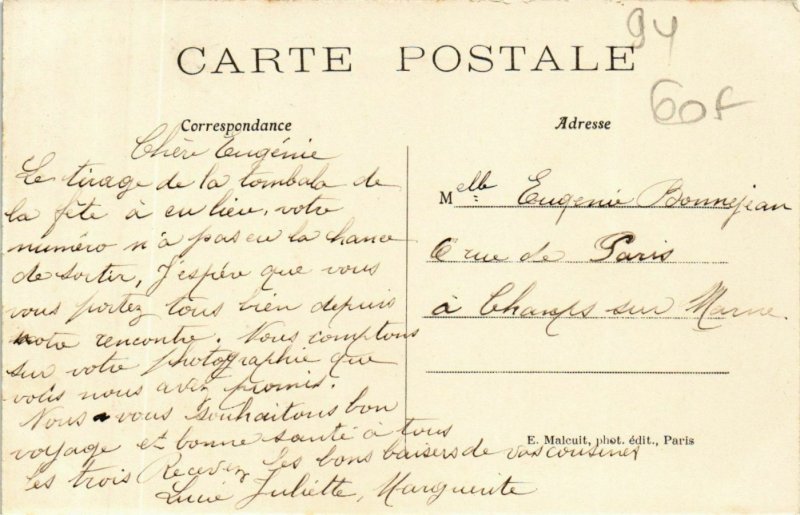 94
CARTE POSTALE
60f
Correspondance
Chère Eugénie
Le tirage de la tombola de
la fête à eu lieu, votre
numéro n'à pas eu la chance
de sortir, J'espère que vous
vous portez tous bien depuis
notre rencontre. Nous comptons
sur votre photographie que
vous nous avez promis.
Nous vous souhaitons bon
voyage et bonne santé à tous
les trois Recevez les bons baisers de vos cousines
Lucie Juliette, Marguerite
Adresse
Melle Eugenie Bonnejean
6 rue de Paris
à Champs sur Marne.
E. Malcuit, phot. édit., Paris